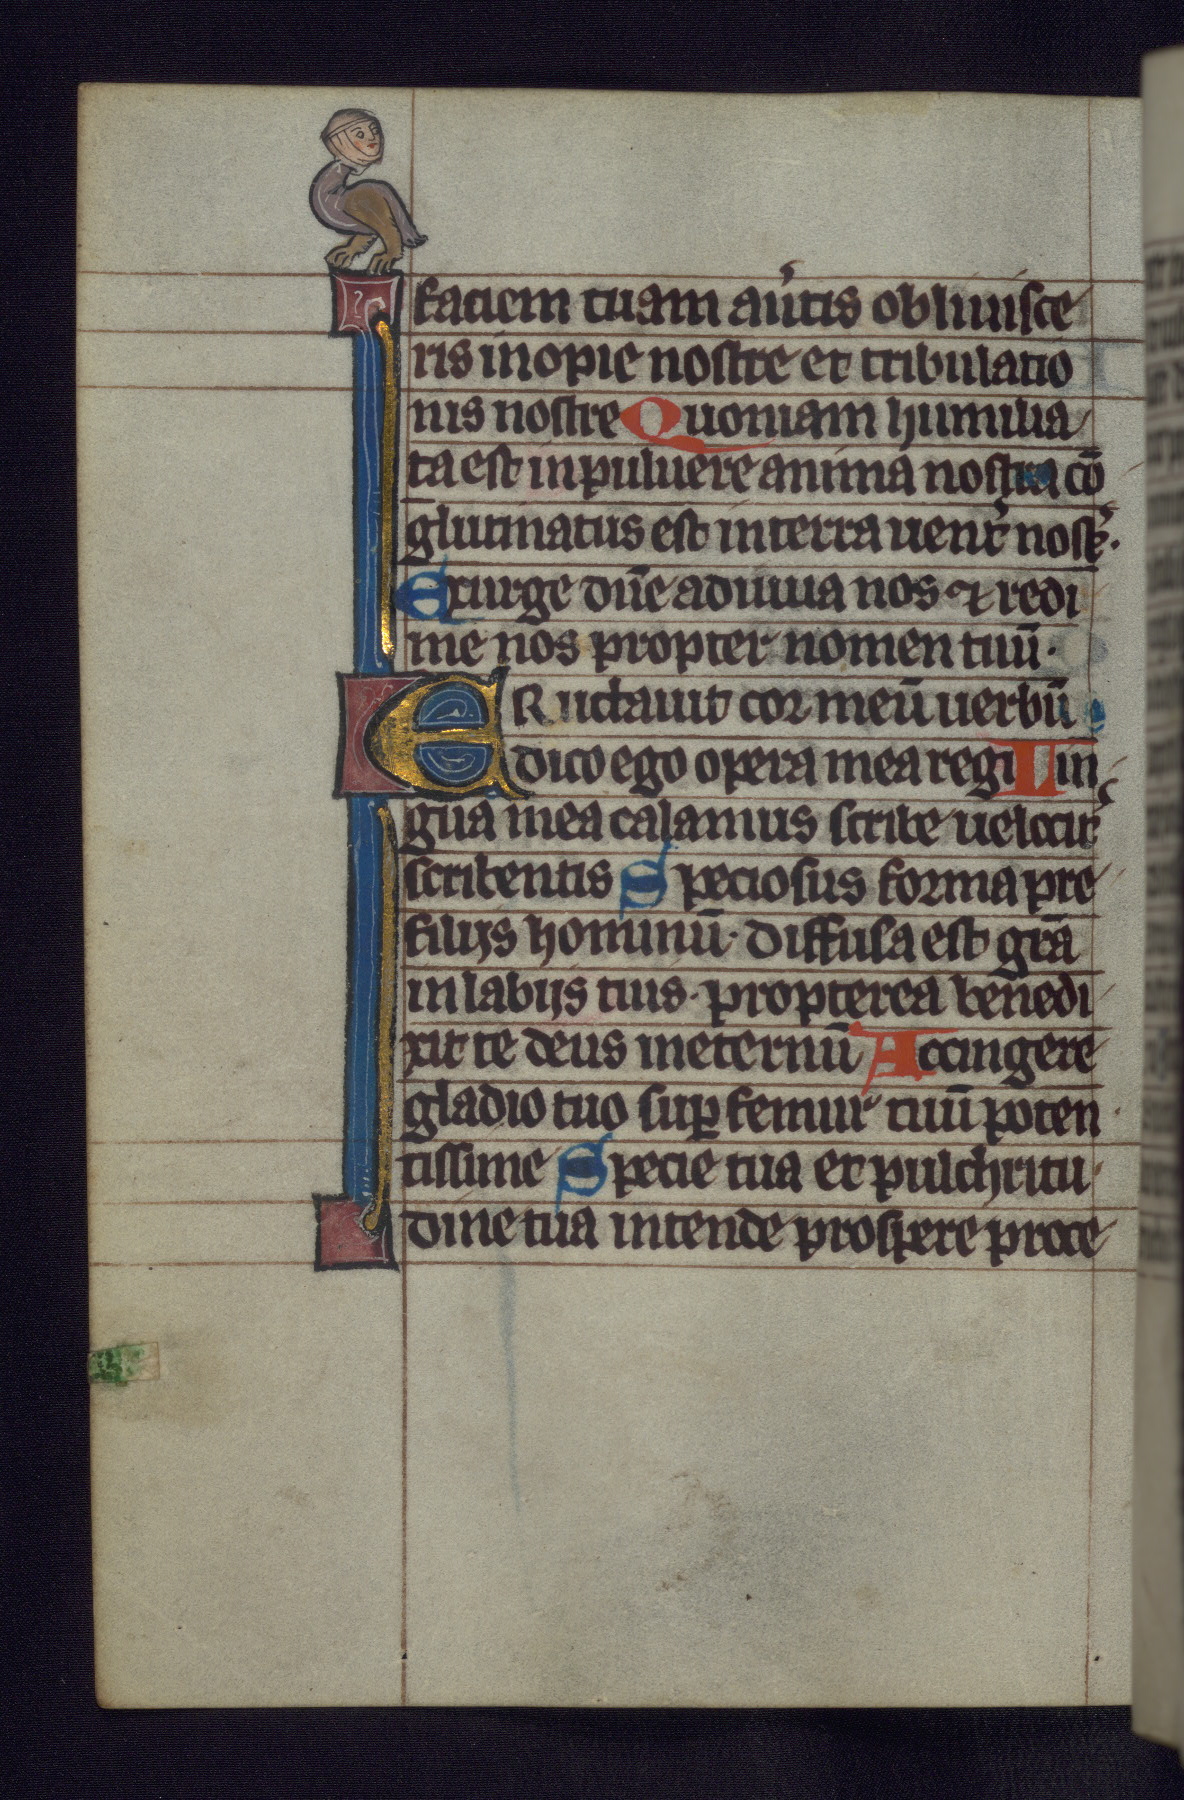 faciem tuam au̾tis obliuisce
ris inopie nostre et tribulatio
nis nostre Quoniam humilia
ta est in puluere anima nostra cō
glutinatus est in terra uent̾ nost̾.
Exurge dn̄e adiuua nos ⁊ redi
me nos propter nomen tuū.
ERuctauit cor meū uerbū
dico ego opera mea regi Lin
gua mea calamus scribe uelocit̾
scribentis Speciosus forma pre
filijs hominū. diffusa est grā
in labijs tuis. propterea benedi
xit te deus in eternū Accingere
gladio tuo suꝑ femur tuū poten
tissime Specie tua et pulchritu
dine tua intende prospere proce